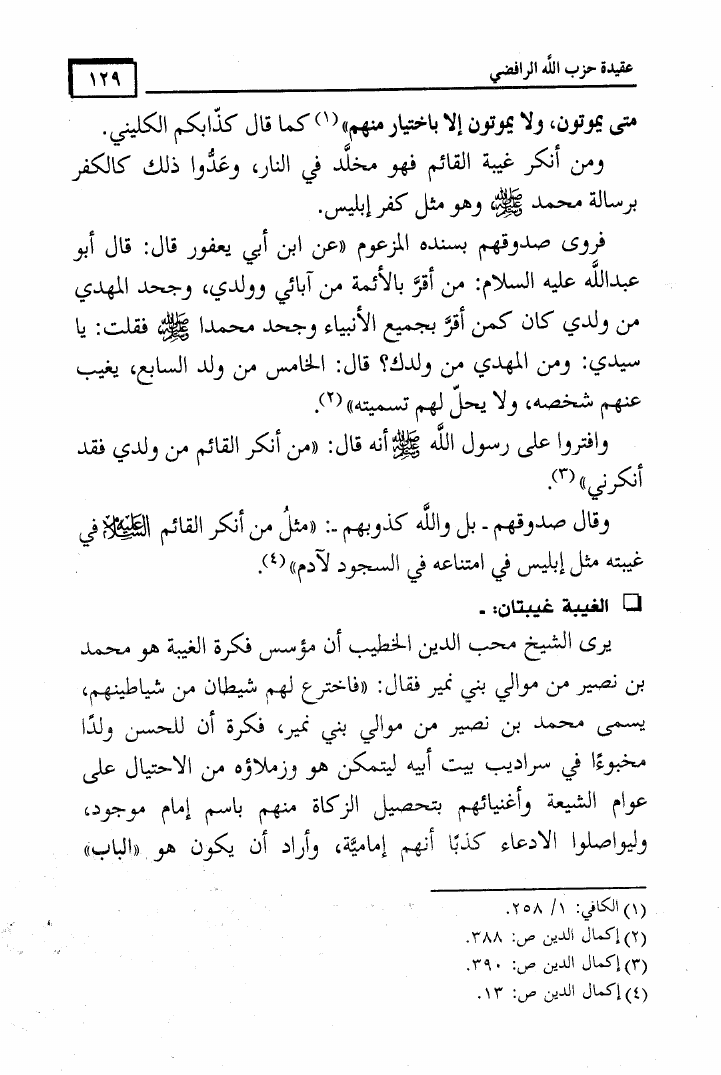 عقيدة حزب اللَّه الرافضي
١٢٩
متى يموتون، ولا يموتون إلا باختيار منهم»(١) كما قال كذّابكم الكليني.
ومن أنكر غيبة القائم فهو مخلَّد في النار، وعَدُّوا ذلك كالكفر
برسالة محمد ﷺ وهو مثل كفر إبليس.
فروى صدوقهم بسنده المزعوم «عن ابن أبي يعفور قال: قال أبو
عبداللَّه عليه السلام: من أقرَّ بالأئمة من آبائي وولدي، وجحد المهدي
من ولدي كان كمن أقرَّ بجميع الأنبياء وجحد محمدا ﷺ فقلت: يا
سيدي: ومن المهدي من ولدك؟ قال: الخامس من ولد السابع، يغيب
عنهم شخصه، ولا يحلّ لهم تسميته»(٢).
وافتروا على رسول اللَّه ﷺ أنه قال: «من أنكر القائم من ولدي فقد
أنكرني»(٣).
وقال صدوقهم ـ بل واللَّه كذوبهم ـ: «مثلُ من أنكر القائم عليه السلام في
غيبته مثل إبليس في امتناعه في السجود لآدم»(٤).
❏ الغيبة غيبتان: ـ
يرى الشيخ محب الدين الخطيب أن مؤسس فكرة الغيبة هو محمد
بن نصير من موالي بني نمير فقال: «فاخترع لهم شيطان من شياطينهم،
يسمى محمد بن نصير من موالي بني نمير، فكرة أن للحسن ولدًا
مخبوءًا في سراديب بيت أبيه ليتمكن هو وزملاؤه من الاحتيال على
عوام الشيعة وأغنيائهم بتحصيل الزكاة منهم باسم إمام موجود،
وليواصلوا الادعاء كذبًا أنهم إماميَّة، وأراد أن يكون هو «الباب»
(١) الكافي: ١/ ٢٥٨.
(٢) إكمال الدين ص: ٣٨٨.
(٣) إكمال الدين ص: ٣٩٠.
(٤) إكمال الدين ص: ١٣.